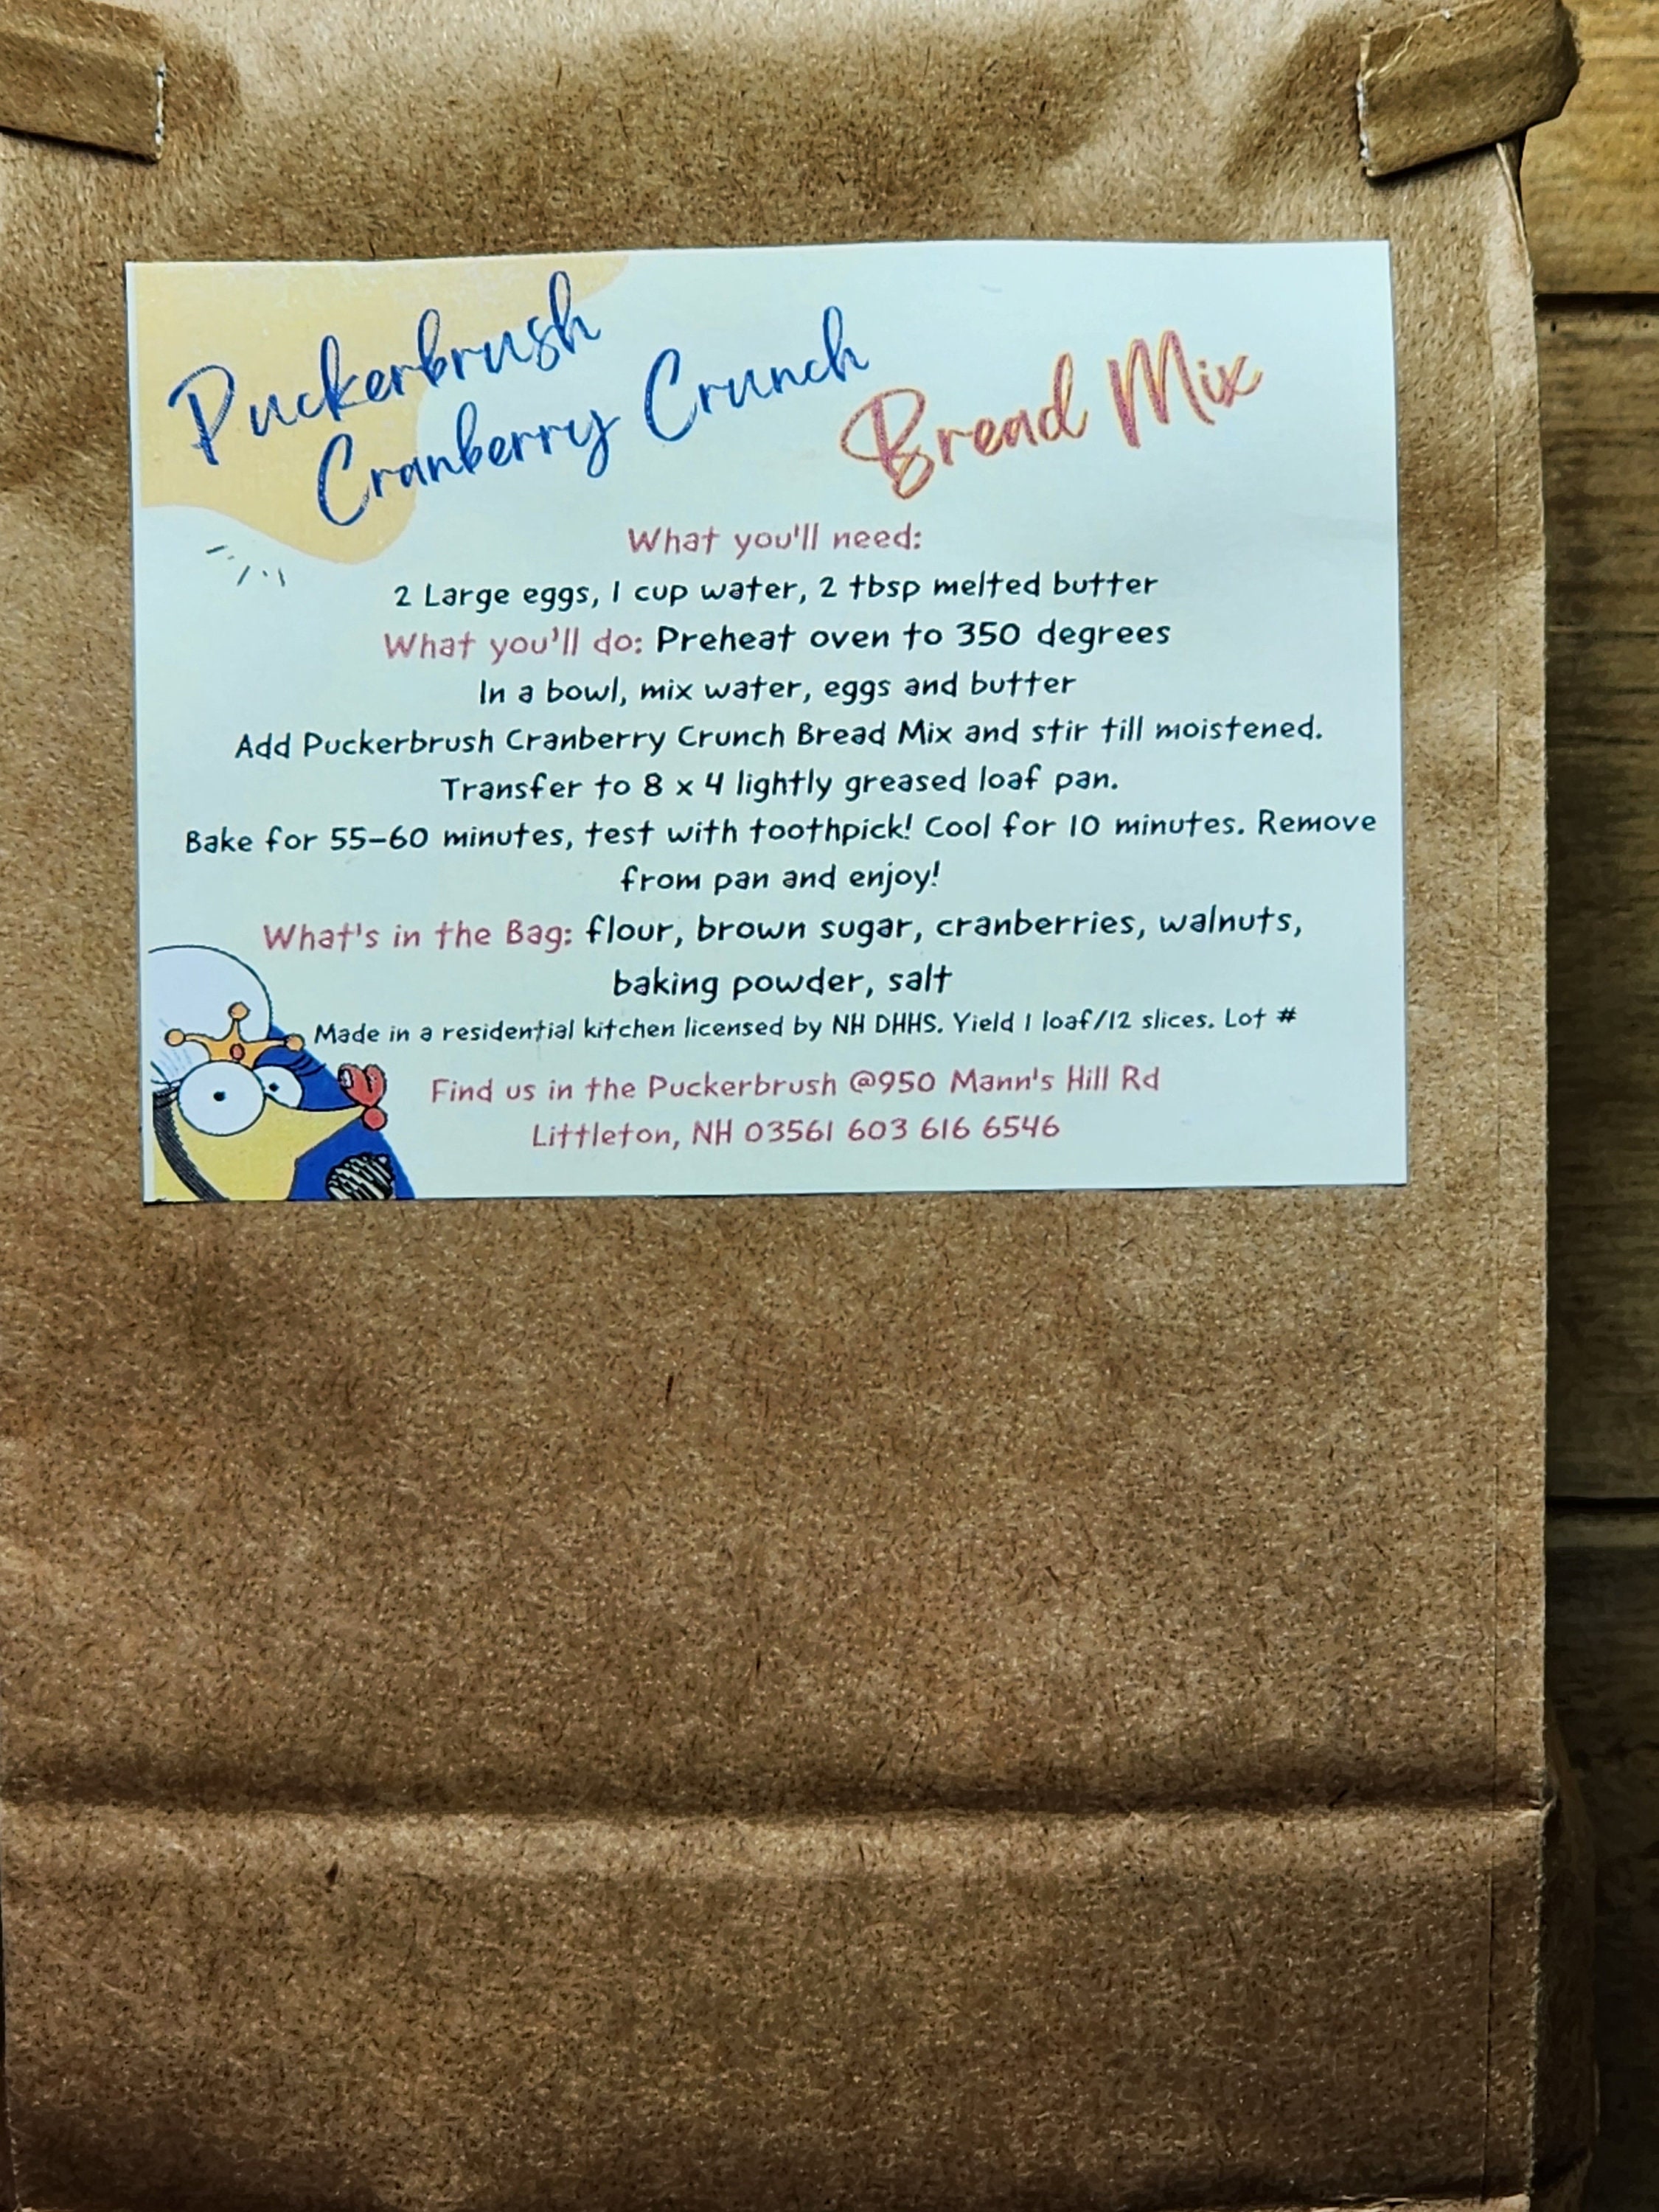 Puckerbrush
Cranberry Crunch
Bread Mix
What you'll need:
2 Large eggs, 1 cup water, 2 tbsp melted butter
What you'll do: Preheat oven to 350 degrees
In a bowl, mix water, eggs and butter
Add Puckerbrush Cranberry Crunch Bread Mix and stir till moistened.
Transfer to 8 x 4 lightly greased loaf pan.
Bake for 55-60 minutes, test with toothpick! Cool for 10 minutes. Remove
from pan and enjoy!
What's in the Bag: flour, brown sugar, cranberries, walnuts,
baking powder, salt
Made in a residential kitchen licensed by NH DHHS. Yield 1 loaf/12 slices. Lot #
Find us in the Puckerbrush @950 Mann's Hill Rd
Littleton, NH 03561 603 616 6546